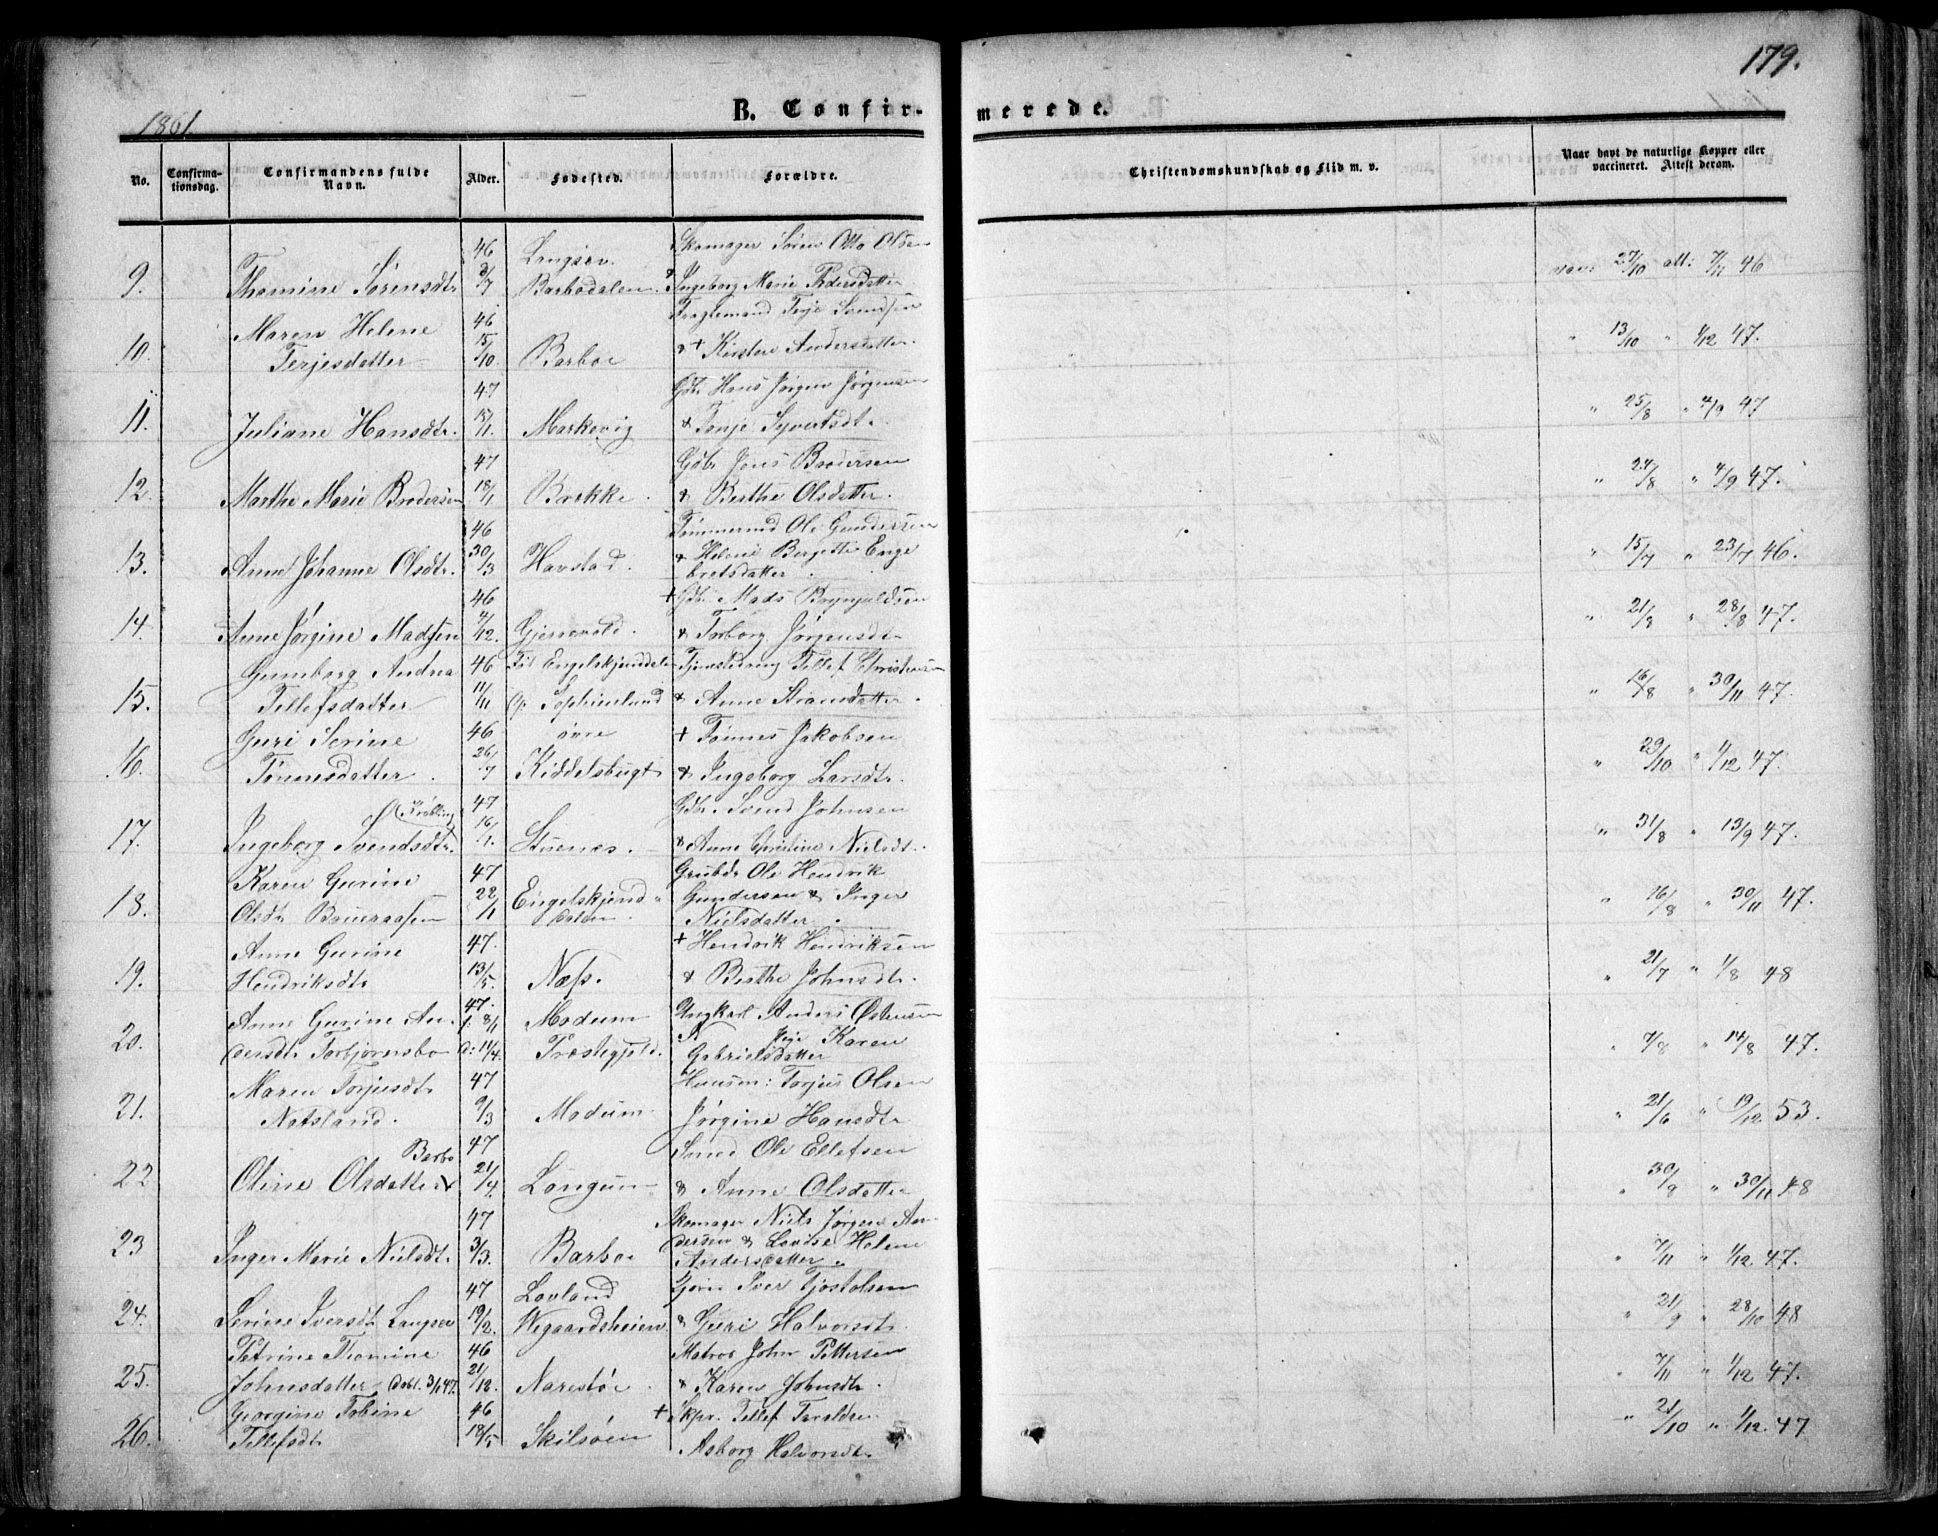 179.
1861.
B. Confir-
merede.
No.
Confirma-
tionsdag.
Confirmandens fulde
Navn.
Alder.
Fødested.
Forældre.
Christendomskundskab og Flid m. v.
Naar havt de naturlige Kopper eller
vaccineret. Attest derom.
46 Langsev. Skomager Søren Otto Olsen
9. Thomine Sørensdtr 3/7 Barbodalen. & Ingeborg Marie Pedersdatter vac: 27/10 att: 7/11 46
Maren Helene 46 Fragtemand Terje Svendsen
10. Terjesdatter 15/10. Barboe & + Kirsten Andersdatter. " 13/10 " 1/12 47.
47 Gdbr Hans Jørgen Jørgensen
11. Juliane Hansdtr. 15/11. Markevig & Tonje Syvertsdtr. " 25/8 " 4/9 47
47 Gdbr Jens Brodersen
12. Marthe Marie Brodersen 18/1 Bække. & Berthe Olsdatter. " 24/8 " 4/9 47.
46 Tømmermd Ole Gundersen
13. Anne Johanne Olsdtr. 30/3 Havstad. & Helene Bergette Enge
bretsdatter. " 15/7 " 23/7 46.
46 + Gdbr. Mads Brynjuldsen
14. Anne Jørgine Madsen 4/12. Gjessevold. & Torborg Jørgensdtr " 21/8 " 28/8 47.
Gunborg Andrea 46 Engelskjønddalen Tjenstedreng Tellef Christensen
15. Tellefsdatter 11/11 Sophienlund & Anne Stiansdatter. " 16/8 " 30/11 47.
Guri Serine 46 øvre + Tønnes Jakobsen
16. Tønnesdatter. 26/7 Kiddelsbugt & Ingeborg Larsdtr. " 29/10 " 1/12 47.
47 Gdbr. Svend Johnsen
17. Ingeborg Svendsdtr. 16/1. Stuenes. & Anne Christine Nielsdtr. " 31/8 " 13/9 47.
Karen Gurine 47 Grubdr Ole Hendrik
18. Olsdtr 22/1 Engelskjønd- Gundersen & Inger
dalen. Nielsdatter. " 16/8 " 30/11 47.
Anne Gurine 47. + Hendrik Hendriksen
19. Hendriksdtr 13/5. Næss. & Berthe Johnsdtr. " 21/7 " 1/8 48
Anne Gurine An- 47. f. 8/1 Modum Ungkarl Anders Østensen
20. dersdtr Torbjørnsbo d: 11/4. Præstegjeld. & Pige Karen
Gabrielsdatter " 7/8 " 14/8 47.
Maren Torjusdtr 47 Huusm: Torjus Olsen
21. Natsland. 9/3 Modum. Jørgine Hansdtr. " 21/6 " 19/12. 53.
Barbo 47 Smed Ole Ellefsen
22 Oline Olsdatter 21/4. Longum & Anne Olsdatter " 30/9 " 30/11 48
47 Skomager Niels Jørgen An-
23 Inger Marie Nielsdtr 3/3. Barboe dersen & Lovise Helene
Andersdatter. " 7/11 " 1/12. 47.
47 Lovland Iver Tjostolsen
24. Serine Iversdtr Langsev 19/2. Wegaardsheien & Guri Halvorsdtr. " 21/9 " 28/10 48
Petrine Thomine 46 Matros John Pettersen
25. Johnsdatter. døbt. 3/1 47. 21/12. Narestøe. & Karen Johnsdtr. " 7/11 " 1/12 47.
Georgine Tobine 46 + Skpr. Tellef Taraldsen
26. Tellefsdtr 18/5 Skilsøen Asborg Halvorsdtr " 21/10 " 1/12. 47